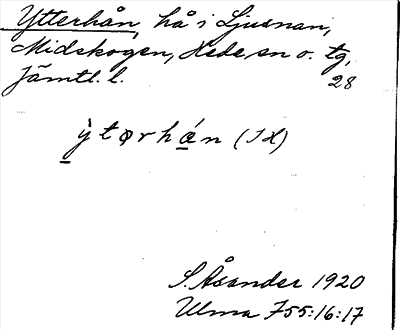 Ytterhån, hå i Ljusnan,
Midskogen, Hede sn o. tg,
Jämtl. l. 28
ỳtərhán (IH)
S. Åsander 1920
Ulma 755:16:17